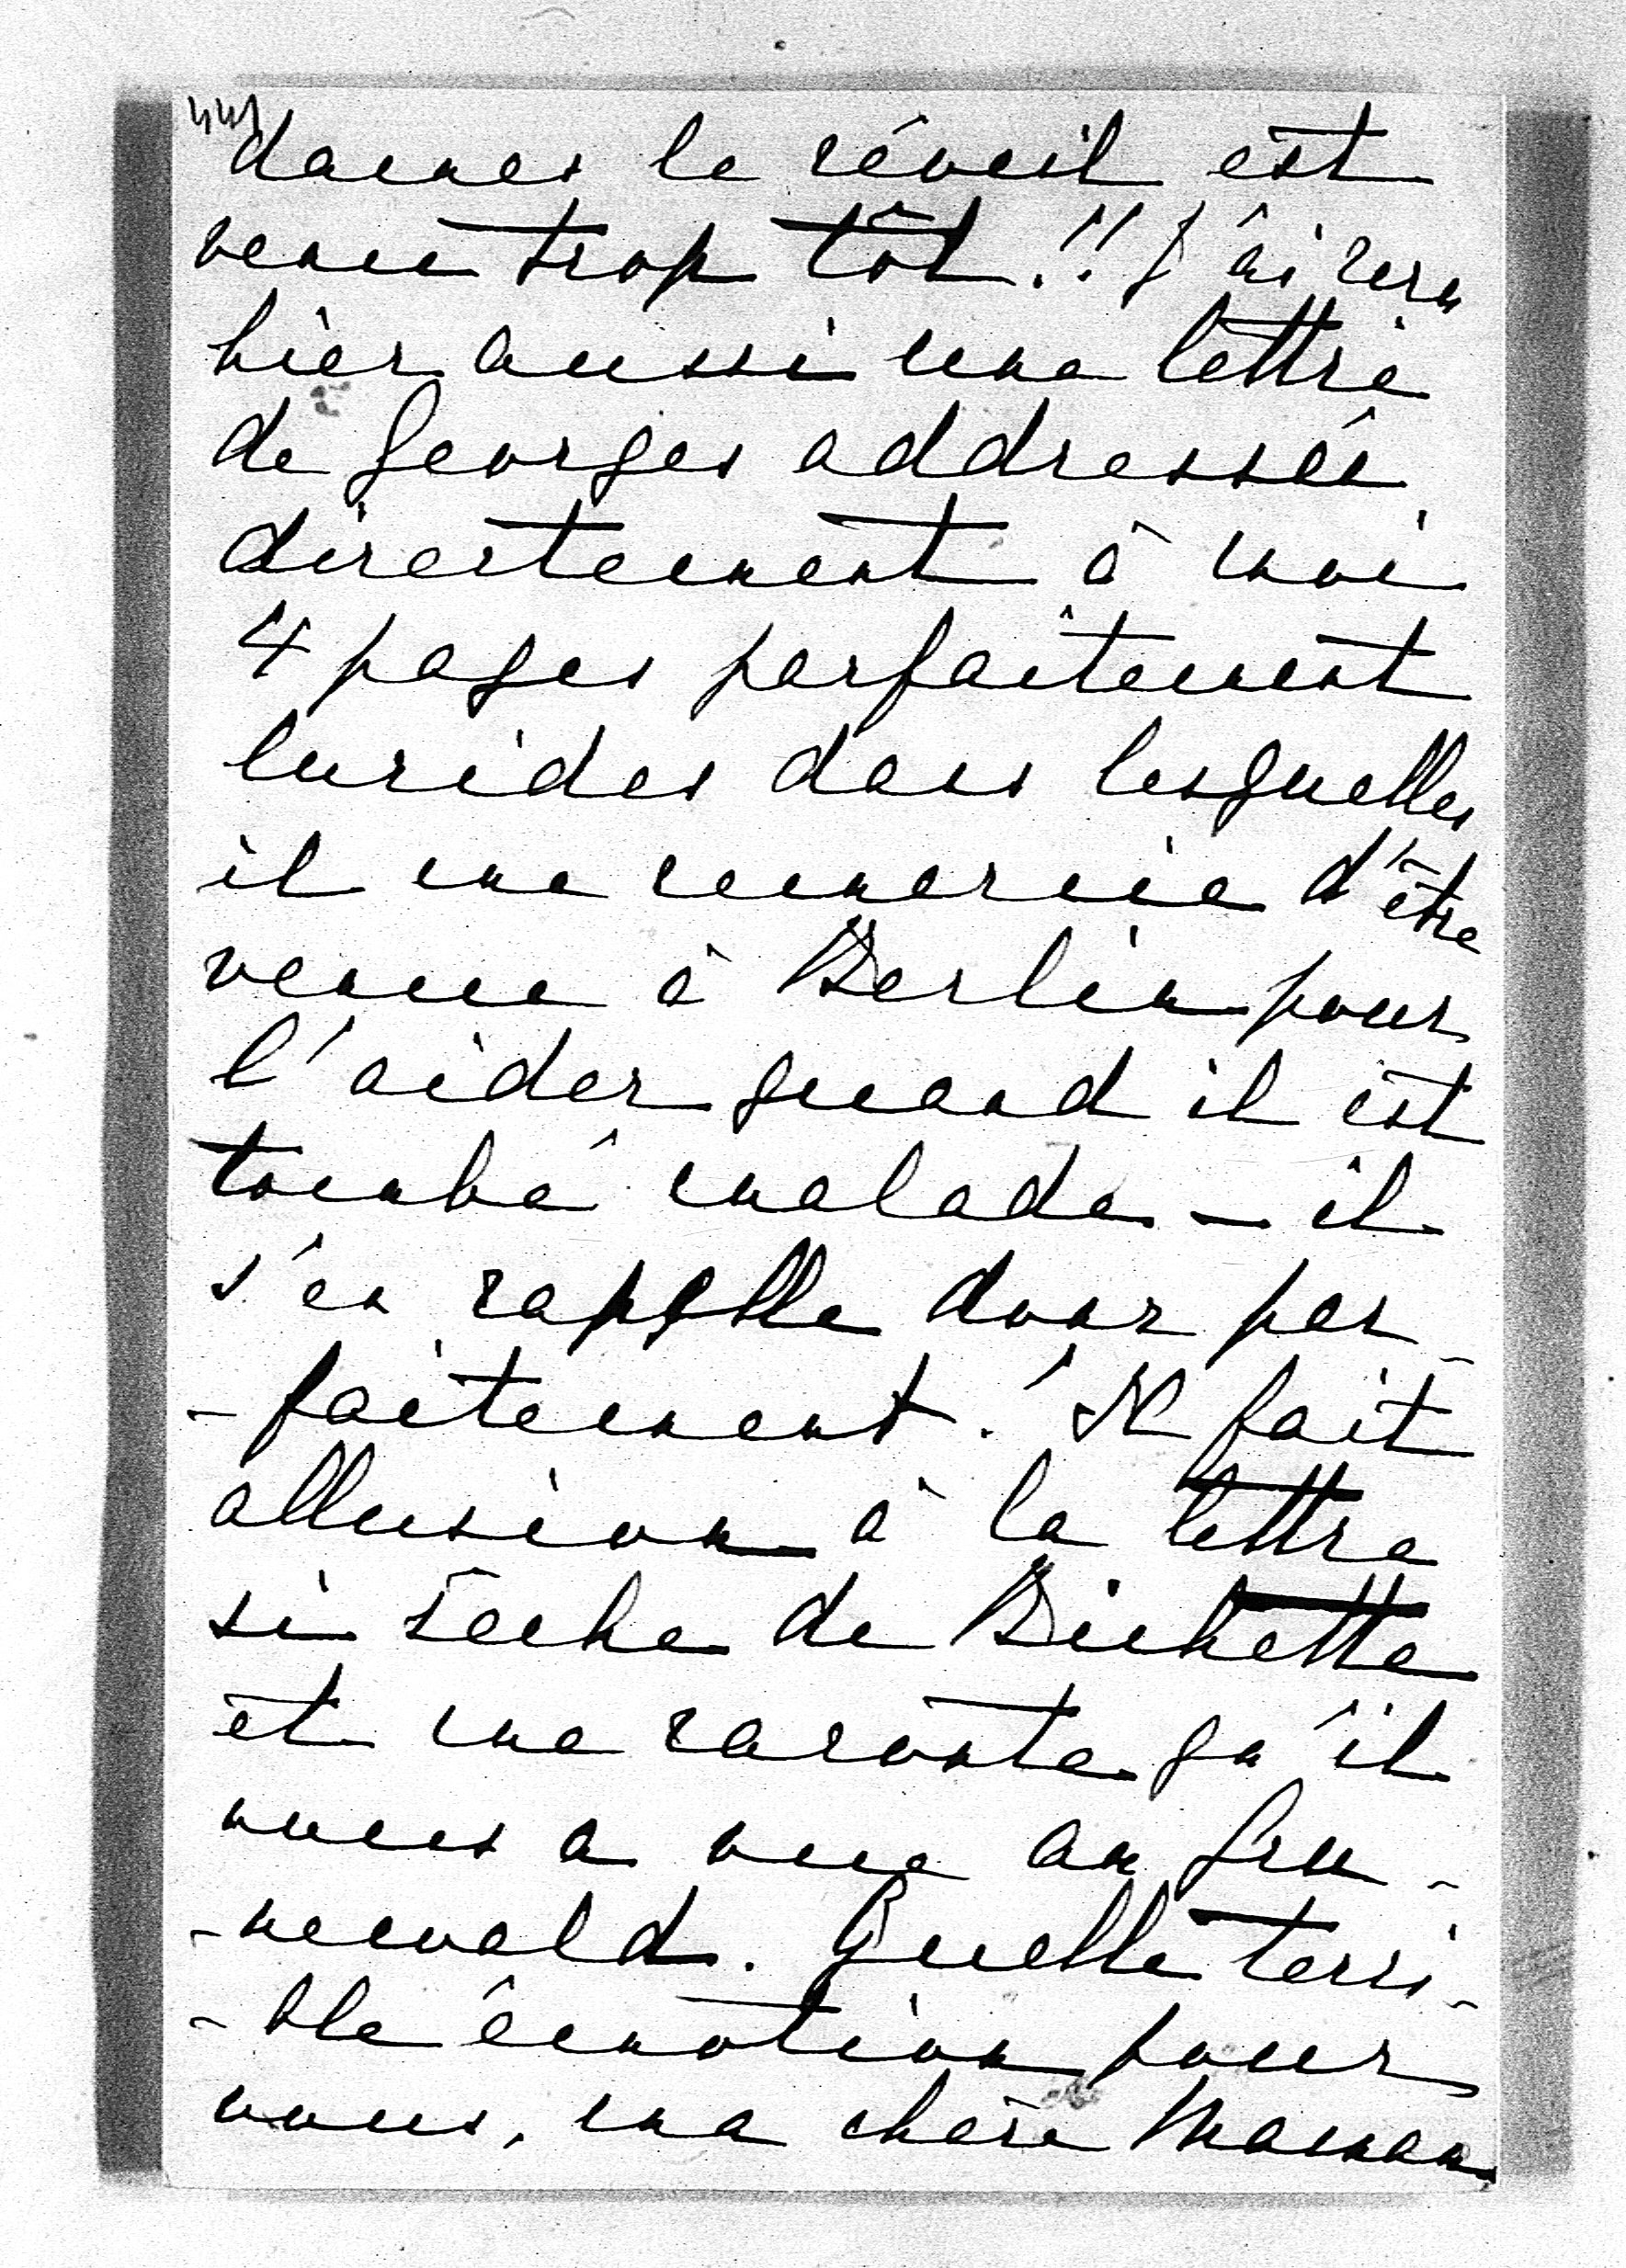 dames le réveil est
venu trop tôt!! J'ai recu
hier aussi une lettre
de Georges addressée
directement à moi
4 pages parfaitement
lucides dans lesquelles
il me remercie d'être
venue à Berlin pour
l'aider quand il est
tombé malade – il
s'en rappelle donc par-
-faitement! Il fait
allusion à la lettre
si sèche de Bichette
et me raconte qu'il
vous a vue au Gru-
-newald. Quelle terri-
-ble émotion pour
vous, ma chère Maman.